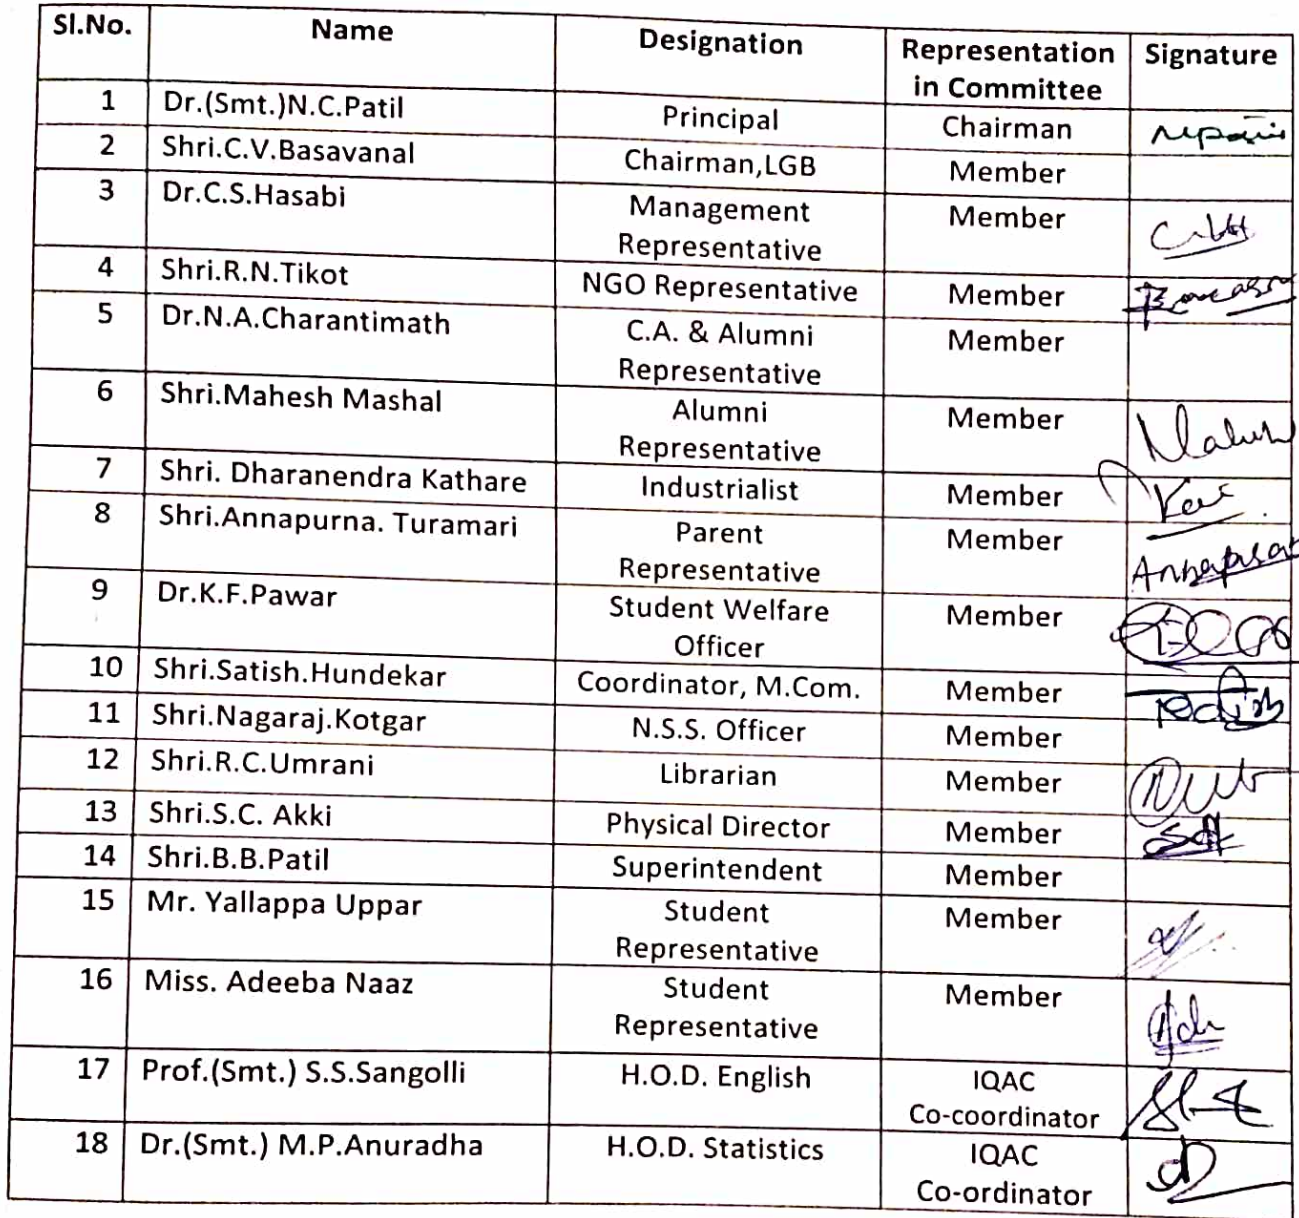 Sl.No. Name Designation Representation in Committee Signature
1 Dr.(Smt.)N.C.Patil Principal Chairman
2 Shri.C.V.Basavanal Chairman,LGB Member
3 Dr.C.S.Hasabi Management Representative Member
4 Shri.R.N.Tikot NGO Representative Member
5 Dr.N.A.Charantimath C.A. & Alumni Representative Member
6 Shri.Mahesh Mashal Alumni Representative Member
7 Shri. Dharanendra Kathare Industrialist Member
8 Shri.Annapurna. Turamari Parent Representative Member
9 Dr.K.F.Pawar Student Welfare Officer Member
10 Shri.Satish.Hundekar Coordinator, M.Com. Member
11 Shri.Nagaraj.Kotgar N.S.S. Officer Member
12 Shri.R.C.Umrani Librarian Member
13 Shri.S.C. Akki Physical Director Member
14 Shri.B.B.Patil Superintendent Member
15 Mr. Yallappa Uppar Student Representative Member
16 Miss. Adeeba Naaz Student Representative Member
17 Prof.(Smt.) S.S.Sangolli H.O.D. English IQAC Co-coordinator
18 Dr.(Smt.) M.P.Anuradha H.O.D. Statistics IQAC Co-ordinator